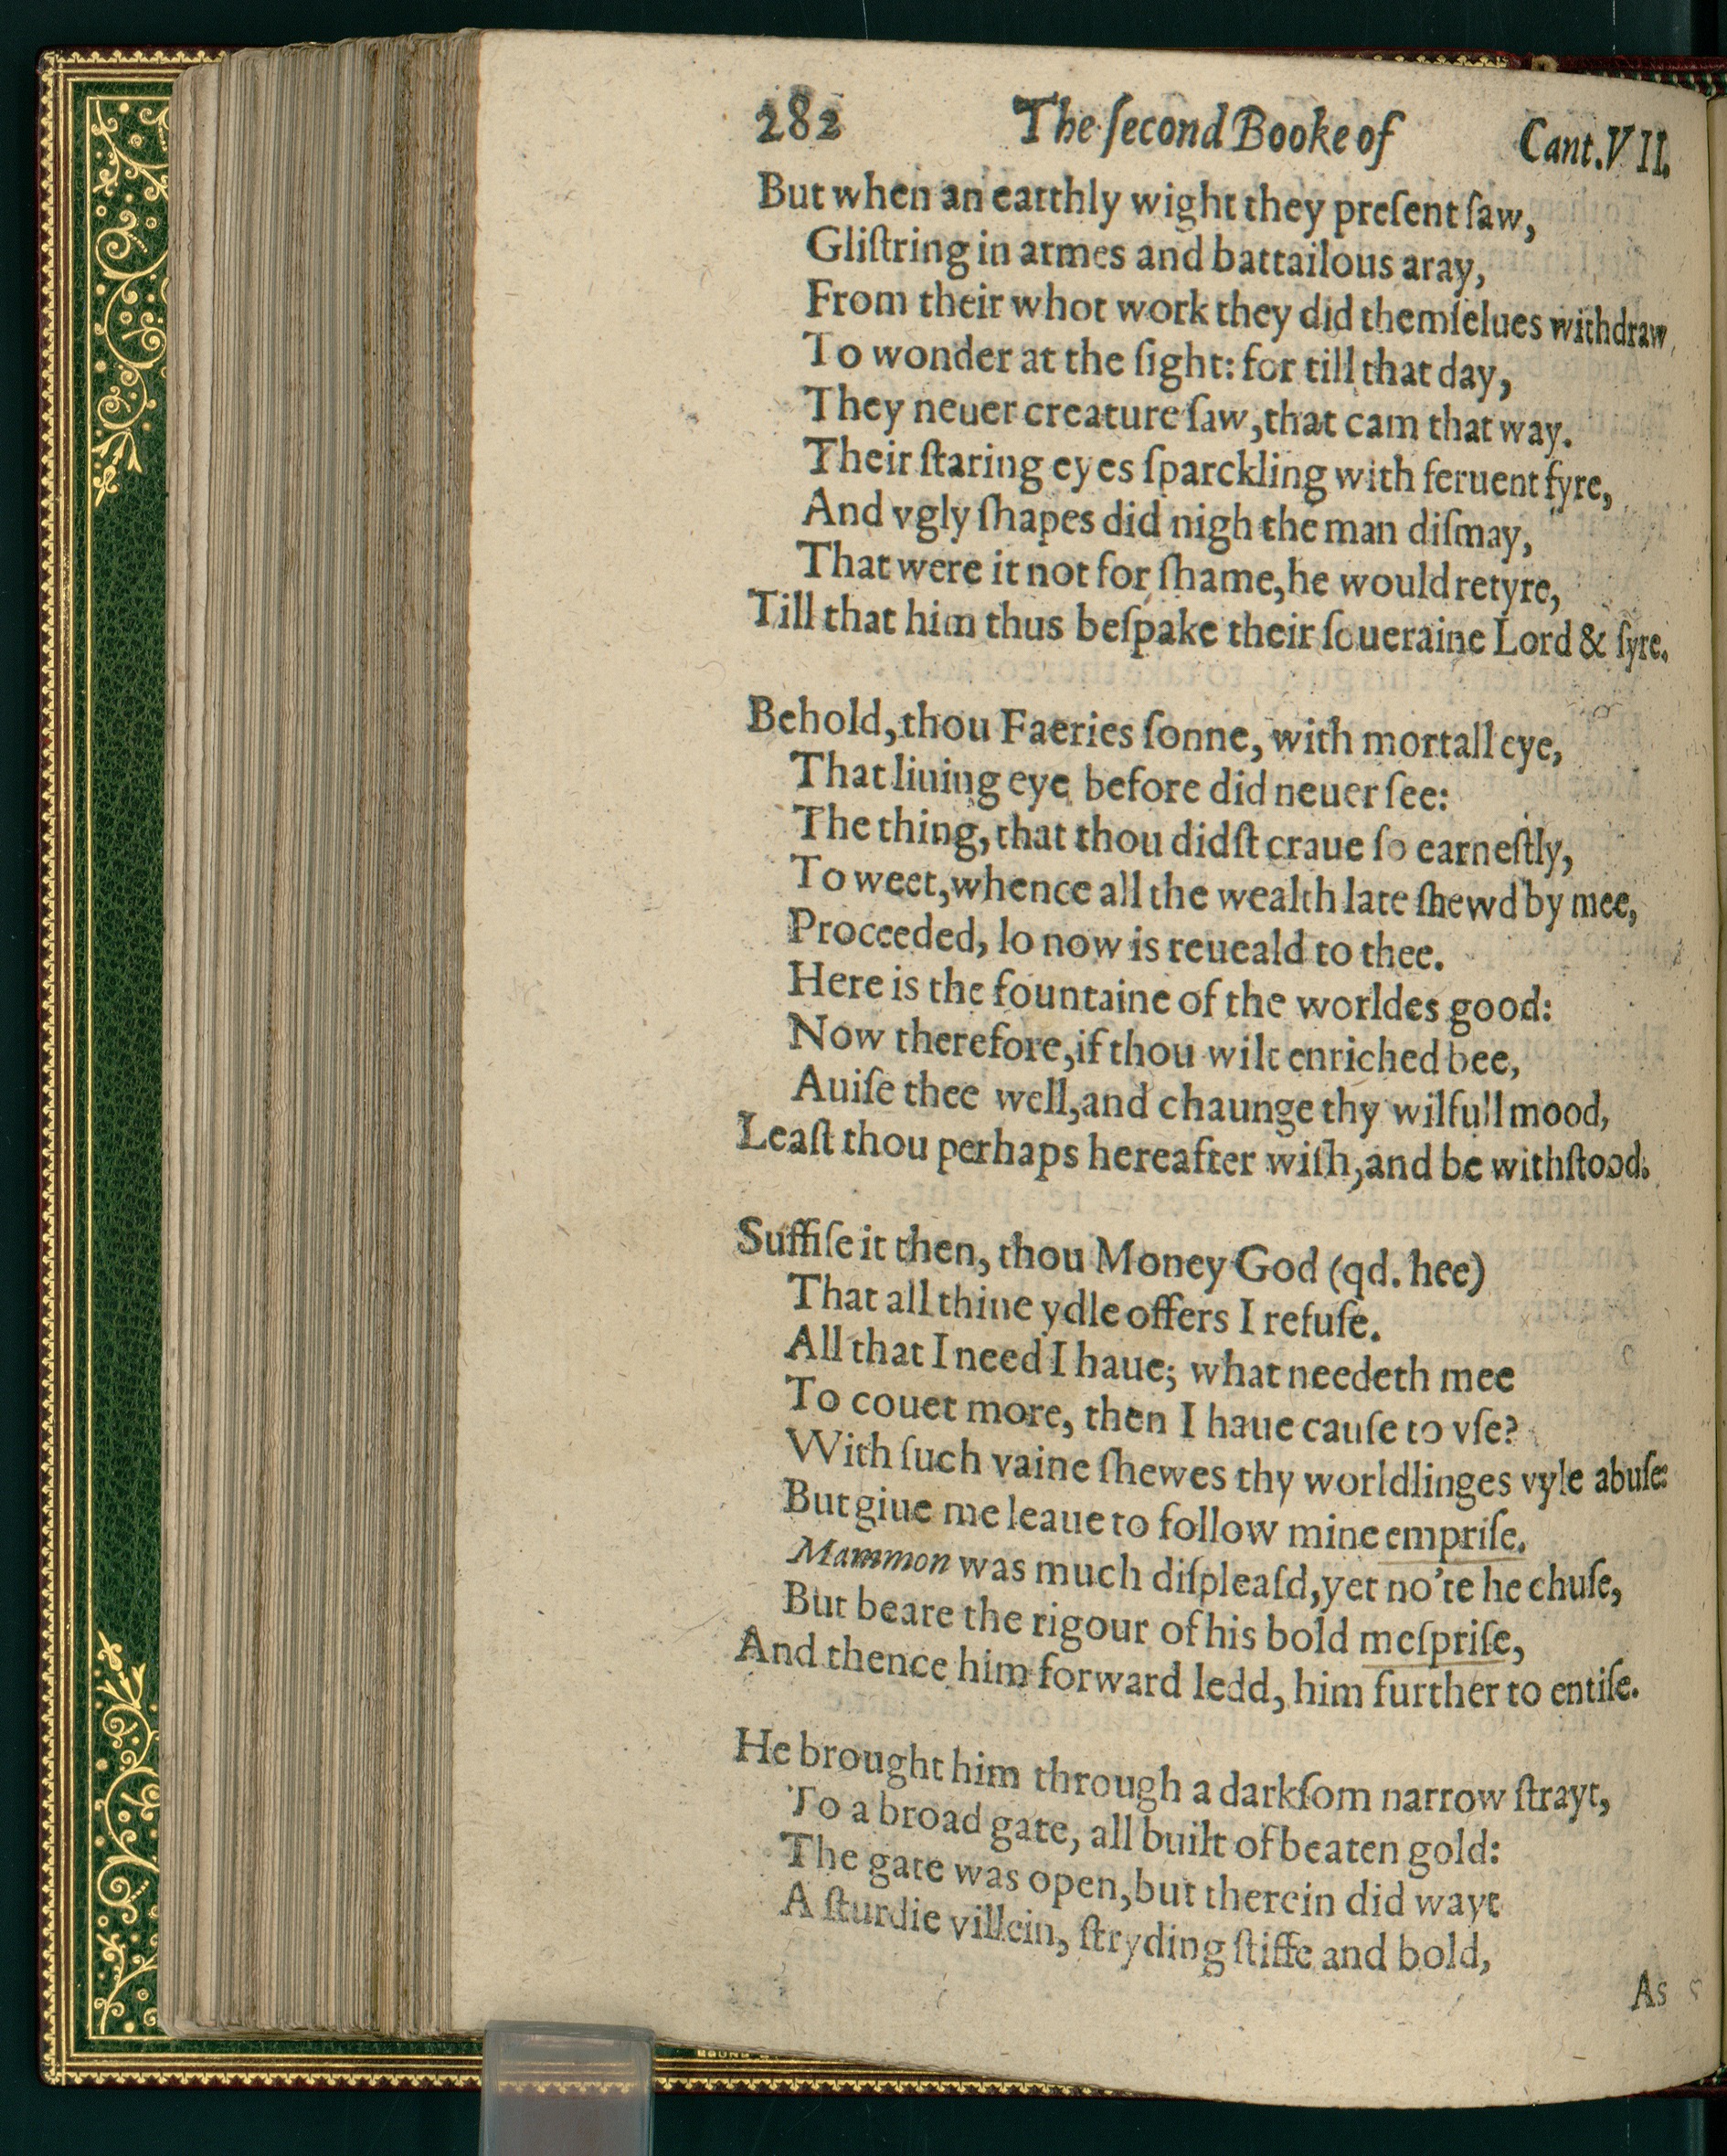 282 The ſecond Booke of Cant. VII.
But when an earthly wight they preſent ſaw,
Gliſtring in armes and battailous aray,
From their whot work they did themſelues withdraw
To wonder at the ſight: for till that day,
They neuer creature ſaw, that cam that way.
Their ſtaring eyes ſparckling with feruent fyre,
And vgly ſhapes did nigh the man diſmay,
That were it not for ſhame, he would retyre,
Till that him thus beſpake their ſoueraine Lord & ſyre.
Behold, thou Faeries ſonne, with mortall eye,
That liuing eye before did neuer ſee:
The thing, that thou didſt craue ſo earneſtly,
To weet, whence all the wealth late ſhewd by mee,
Proceeded, lo now is reueald to thee.
Here is the fountaine of the worldes good:
Now therefore, if thou wilt enriched bee,
Auiſe thee well, and chaunge thy wilfull mood,
Leaſt thou perhaps hereafter wiſh, and be withſtood.
Suffiſe it then, thou Money God (qd. hee)
That all thine ydle offers I refuſe.
All that I need I haue; what needeth mee
To couet more, then I haue cauſe to vſe?
With ſuch vaine ſhewes thy worldlinges vyle abuſe:
But giue me leaue to follow mine empriſe.
Mammon was much diſpleaſd, yet no'te he chuſe,
But beare the rigour of his bold meſpriſe,
And thence him forward ledd, him further to entiſe.
He brought him through a darkſom narrow ſtrayt,
To a broad gate, all built of beaten gold:
The gate was open, but therein did wayt
A ſturdie villein, ſtryding ſtiffe and bold,
As